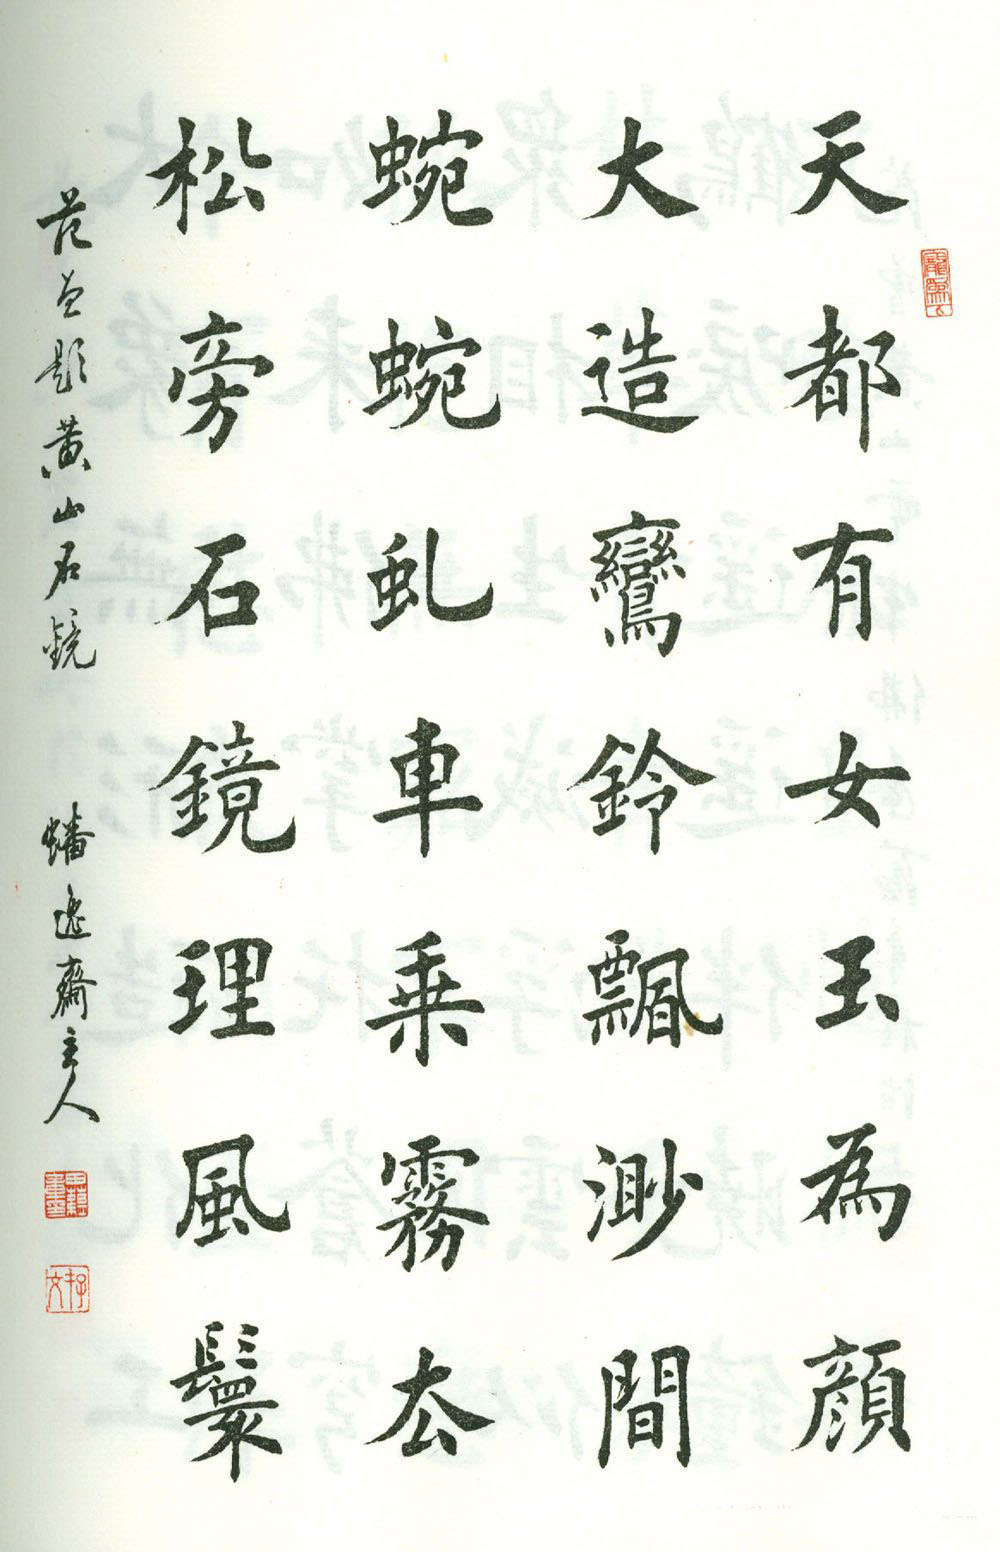 天都有女玉為顏
大造鸞鈴飄渺間
蜿蜿虬車乘霧厺
松旁石鏡理風鬟
范題黃山石鏡 蟠齋主人